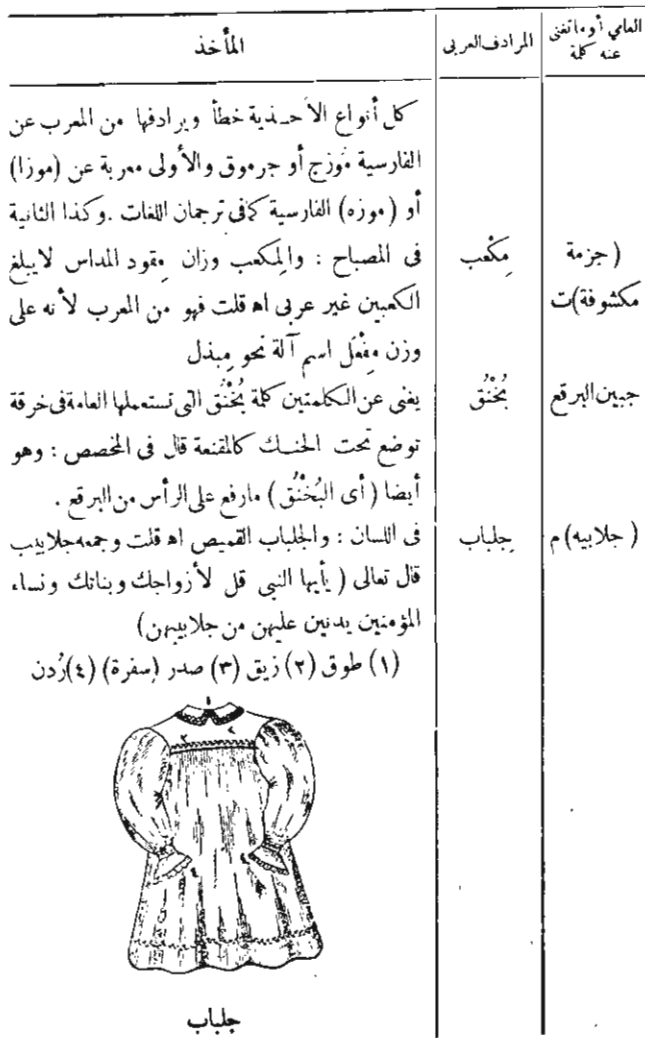 العامي أو ماتغنى عنه كلمة
المرادف العربى
المأخذ
كل أنواع الأحـذية خطأ ويرادفها من المعرب عن
الفارسية مُوزج أو جرموق والأولى معربة عن (موزا)
أو (موزه) الفارسية كما فى ترجمان اللغات . وكذا الثانية
(جزمة
مكشوفة)ت
مِكْعب
فى المصباح : والمِكعب وزان مِقود المداس لا يبلغ
الكعبين غير عربى اه قلت فهو من المعرب لأنه على
وزن مِفْعَل اسم آلة نحو مِبذل
جبين البرقع
بُخْنُق
يغنى عن الكلمتين كلمة بُخْنُق التى تستعملها العامة فى خرقة
توضع تحت الحنـك كالمقنعة قال فى المخصص : وهو
أيضا ( أى البُخْنُق ) مارفع على الرأس من البرقع .
( جلابيه ) م
جِلباب
فى اللسان : والجلباب القميص اه قلت وجمعه جلابيب
قال تعالى ( يأيها النبى قل لأزواجك وبناتك ونساء
المؤمنين يدنين عليهن من جلابيبهن)
(١) طوق (٢) زيق (٣) صدر (سفرة) (٤)رُدن
١
٢
٣
٤
٤
جلباب